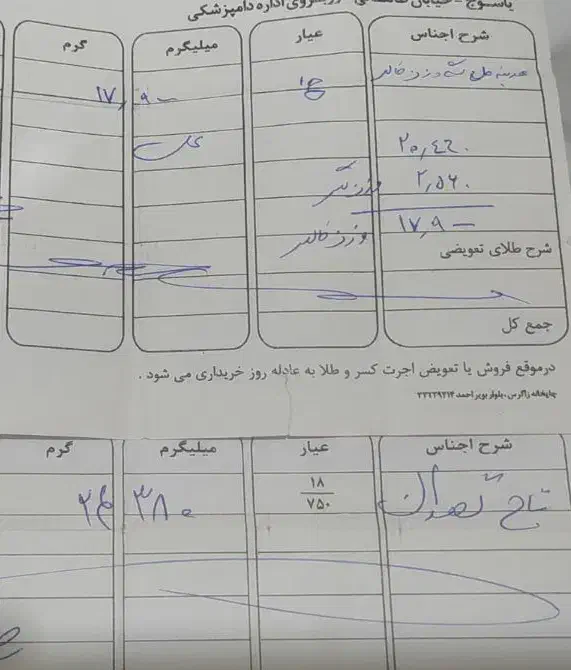 یاسوج - خیابان روبروی اداره دامپزشکی
شرح اجناس عیار میلیگرم گرم
وزن خالص ۱۸ ۱۷٫۹ -
۲۰٫۴۶۰ کل
۲٫۵۶۰ وزن نگین
۱۷٫۹ - وزن خالص
شرح طلای تعویضی
جمع کل
درموقع فروش یا تعویض اجرت کسر و طلا به عادله روز خریداری می شود .
چاپخانه زاگرس - بلوار بویر احمد ۳۳۲۲۹۳۱۴
شرح اجناس عیار میلیگرم گرم
تاج ۱۸ ۳۸۰
۷۵۰